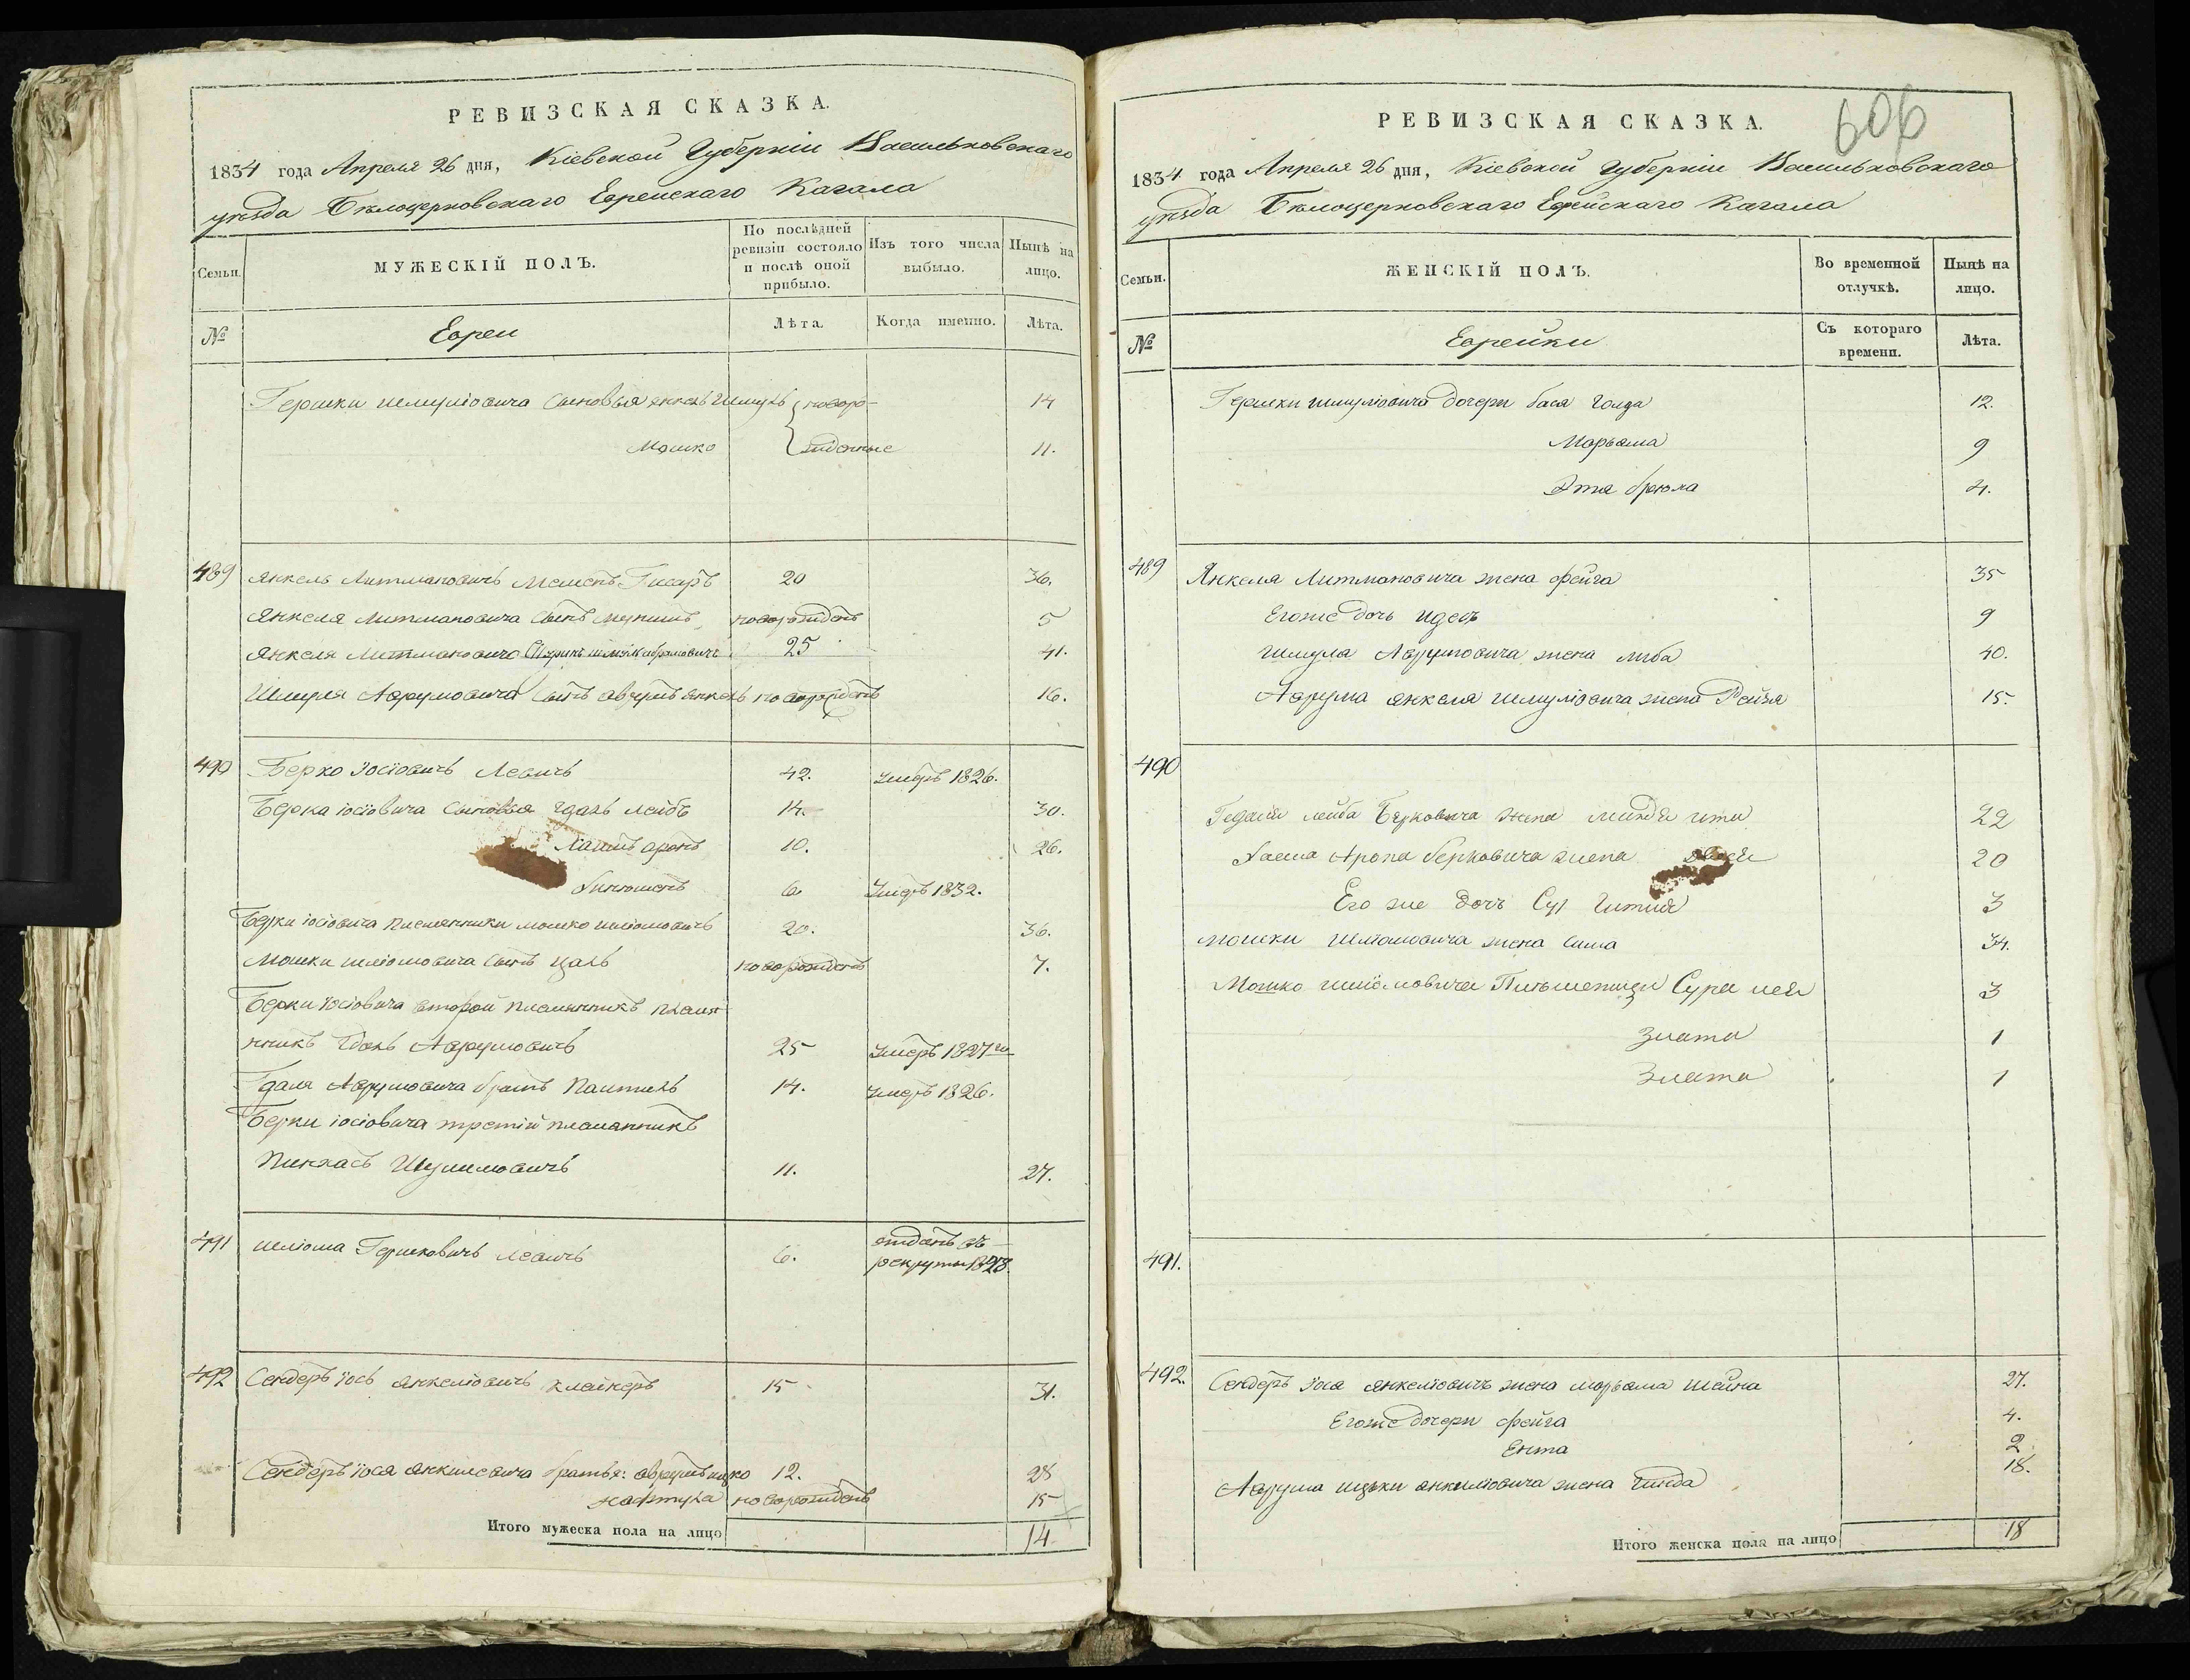 РЕВИЗСКАЯ СКАЗКА.
1834 года Апреля 26 дня, Кіевской Губерніи Васильковскаго
уѣзда Бѣлоцерковскаго Еврейскаго Кагала
Семьи.
МУЖЕСКІЙ ПОЛЪ.
По послѣдней ревизіи состояло и послѣ оной прибыло.
Изъ того числа выбыло.
Нынѣ на лицо.
№
Евреи
Лѣта.
Когда именно.
Лѣта.
Гершки Шмуліовича сыновья Янкель Шмуль новоро- 14
Мошко жденные 11.
489 Янкель Литмановичъ 20 36.
Янкеля Литмановича сынъ новорожденъ 5
Янкеля Литмановича Шуринъ Шмуль Аврумовичъ 25 41.
Шмуля Аврумовича сынъ Аврумъ Янкель новорожденъ 16.
490 Берко Іосіовичъ Левичъ 42. умеръ 1826.
Берка Іосіовича сыновья Гдаль Лейбъ 14. 30.
Хаимъ Аронъ 10. 26.
6 умеръ 1832.
Берки Іосіовича племянники Мошко Шліомовичъ 20. 36.
Мошки Шліомовича сынъ Цаль новорожденъ 7.
Берки Іосіовича второй племянникъ племя-
нникъ Гдаль Аврумовичъ 25 умеръ 1827го
Гдаля Аврумовича братъ 14. умеръ 1826.
Берки Іосіовича третій племянникъ
Пинхасъ Шулимовичъ 11. 27.
491 Шліома Гершковичъ Левичъ 6. отданъ въ
рекруты 1828.
492 Сендеръ Іось Янкеліовичъ Клейнеръ 15 31.
Сендеръ Іося Янкилевича братья: Аврумъ Ицко 12. 28
Нафтула новорожденъ 15
Итого мужеска пола на лицо 14
606
РЕВИЗСКАЯ СКАЗКА.
1834 года Апреля 26 дня, Кіевской Губерніи Васильковскаго
уѣзда Бѣлоцерковскаго Еврейскаго Кагала
Семьи.
ЖЕНСКІЙ ПОЛЪ.
Во временной отлучкѣ.
Нынѣ на лицо.
№
Еврейки
Съ котораго времени.
Лѣта.
Гершки Шмуліовича дочери Бася Голда 12.
Марьяма 9
Эта Брейна 4.
489 Янкеля Литмановича жена Фейга 35
Егоже дочь Идесъ 9
Шмуля Аврумовича жена Либа 40.
Аврума Янкеля Шмуліовича жена Рейзя 15.
490
Гедаля Лейба Берковича жена Миндя Ити 22
Хаема Арона Берковича жена Двося 20
Его же дочь Суя Гитля 3
Мошки Шліомовича жена Сима 34.
Мошко Шліомовича Сура Лея 3
Злата 1
Злата 1
491.
492. Сендеръ Іося Янкеліовичъ жена Марьяма Шейна 27.
Егоже дочери Фейга 4.
Ента 2
Аврума Ицьки Янкиліовича жена Гинда 18.
Итого женска пола на лицо 18